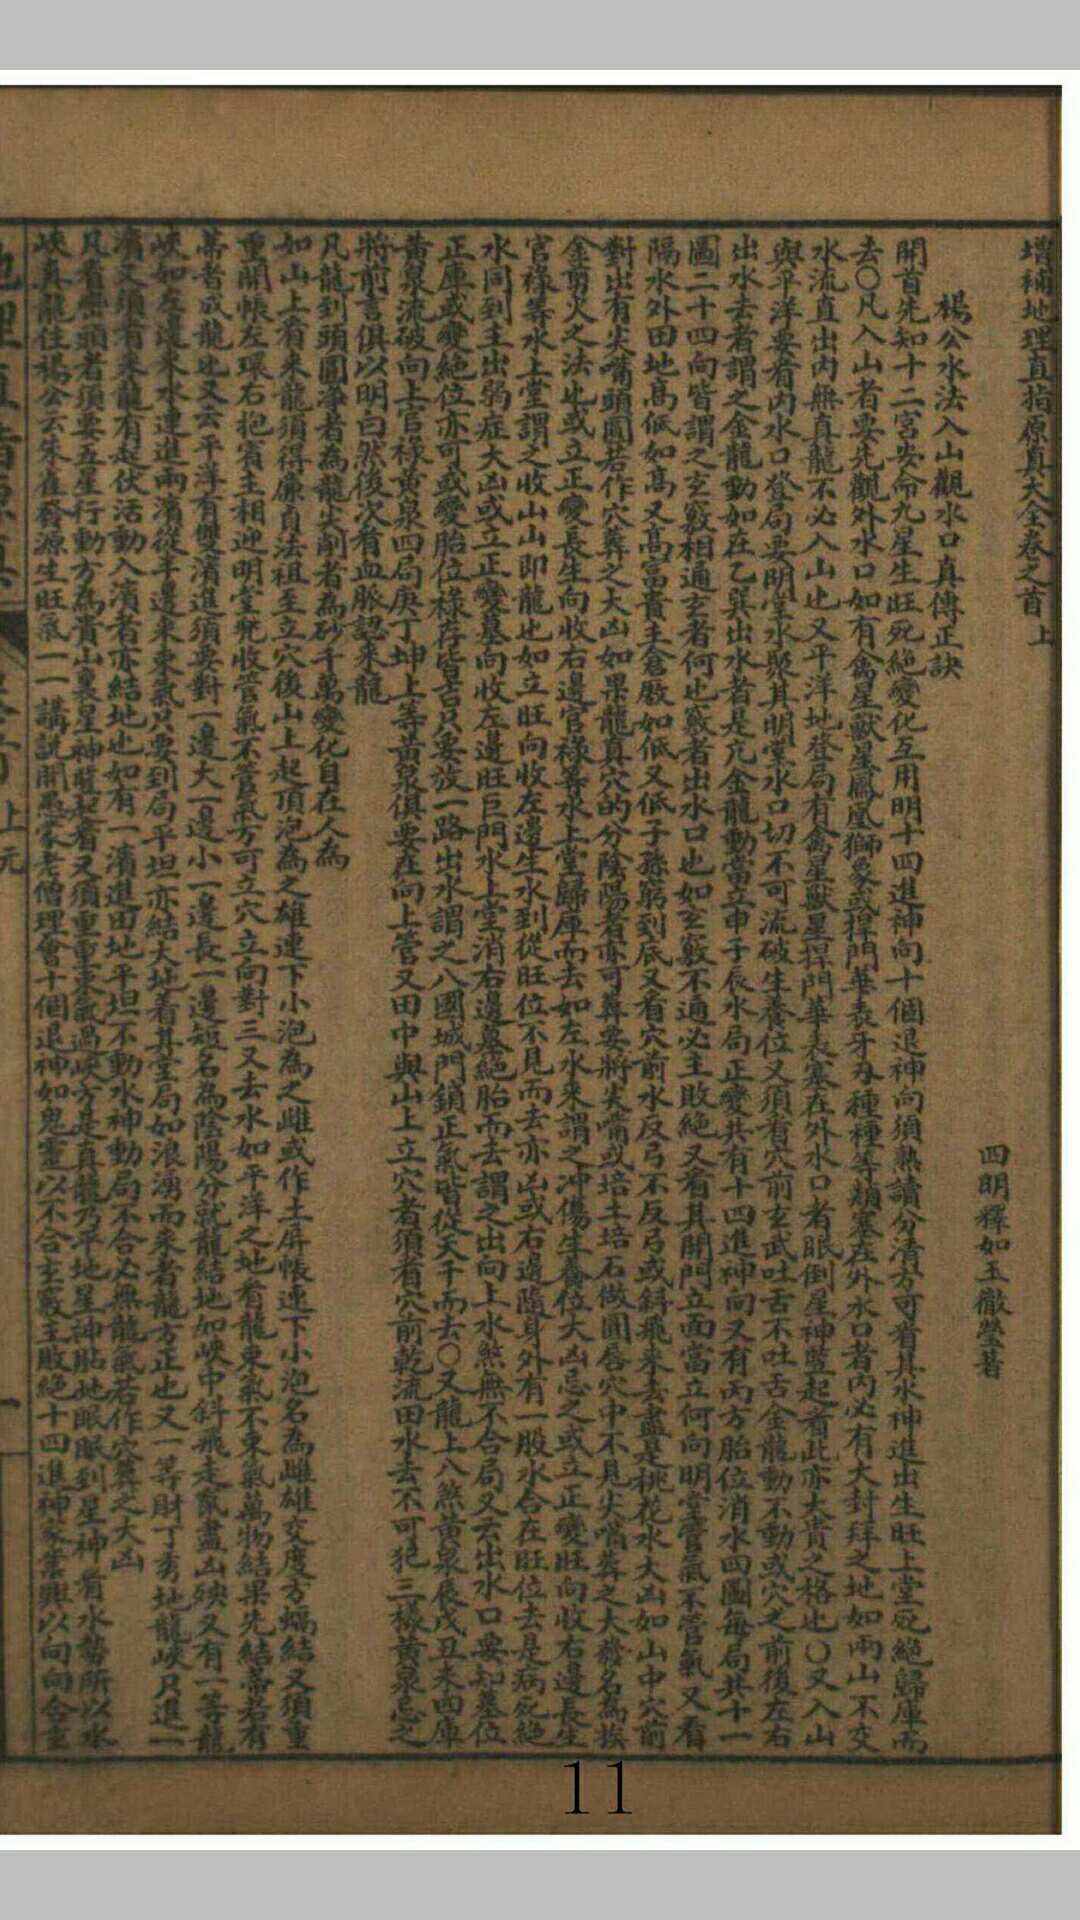 增補地理直指原真大全卷之首 上
四明釋如玉徹瑩著
楊公水法入山觀水口真傳正訣
開首先知十二宮安命九星生旺死絕變化互用明十四進神向十個退神向須熟讀分清方可看其水神進出生旺上堂死絕歸庫而
去〇凡入山者要先觀外水口如有禽星獸星鳳凰獅象或捍門華表牙刀種種等類塞在外水口者內必有大封拜之地如兩山不交
水流直出內無真龍不必入山也又平洋地登局有禽星獸星捍門華表塞在外水口者眼倒星神豎起者此亦大貴之格也〇又入山
與平洋要看內水口登局要明堂水聚其明堂水口切不可流破生養位又須看穴前玄武吐舌不吐舌金龍動不動或穴之前後左右
出水去者謂之金龍動如在乙巽出水者是亢金龍動當立申子辰水局正變共有十四進神向又有丙方胎位消水四圖每局共十一
圖二十四向皆謂之玄竅相通玄者何也竅者出水口也如玄竅不通必主敗絕又看其開門立面當立何向明堂管氣不管氣又看
隔水外田地高低如高又高富貴主倉廒如低又低子孫窮到底又看穴前水反弓不反弓或斜飛來去盡是桃花水大凶如山中穴前
對出有尖嘴頭圓若作穴葬之大凶如果龍真穴的分陰陽者亦可葬要將尖嘴或培土培石做圓唇穴中不見尖嘴葬之大發名為挨
金剪火之法也或立正變長生向收右邊官祿等水上堂歸庫而去如左水來謂之冲傷生養位大凶忌之或立正變旺向收右邊長生
官祿等水上堂謂之收山山即龍也如立旺向收左邊生水到從旺位不見而去亦凶或右邊隨身外有一股水合在旺位去是病死絕
水同到主出弱症大凶或立正變墓向收左邊旺巨門水上堂消右邊墓絕胎而去謂之出向上水煞無不合局又云出水口要知墓位
正庫或變絕位亦可或變胎位祿存皆吉只要放一路出水謂之八國城門鎖正氣皆從天干而去〇又龍上八煞黃泉辰戌丑未四庫
黃泉流破向上官祿黃泉四局庚丁坤上等黃泉俱要在向上管又田中與山上立穴者須看穴前乾流田水去不可犯三樣黃泉忌之
將前言俱以明白然後次看血脈認來龍
凡龍到頭圓淨者為龍尖削者為砂千萬變化自在人為
如山上看來龍須得廉貞法祖至立穴後山上起頂泡為之雄連下小泡為之雌或作土屏帳連下小泡名為雌雄交度方纔結又須重
重開帳左環右抱賓主相迎明堂兜收管氣不管氣方可立穴立向對三叉去水如平洋之地看龍束氣不束氣萬物結果先結蒂若有
蒂者成龍也又云平洋有雙濱進須要對一邊大一邊小一邊長一邊短名為陰陽分就龍結地如峽中斜飛走竄盡凶殃又有一等龍
峽如左邊來水連進兩濱從半邊來束氣只要到局平坦亦結大地看其堂局如浪湧而來者龍方正也又一等財丁秀地龍峽只進一
濱又須看來龍有起伏活動入濱者亦結地也如有一濱進田地平坦不動水神動局不合必無龍氣若作穴葬之大凶
凡看龍頭者須要五星行動方為貴山裏星神豎起看又須重重束氣過峽方是真龍乃平地星神貼地眠眼到星神看水勢所以水
峽真龍住楊公云朱雀發源生旺氣一一講說開愚蒙老僧理會十個退神如鬼靈以不合主竅主敗絕十四進神家業興以向向合玄
11